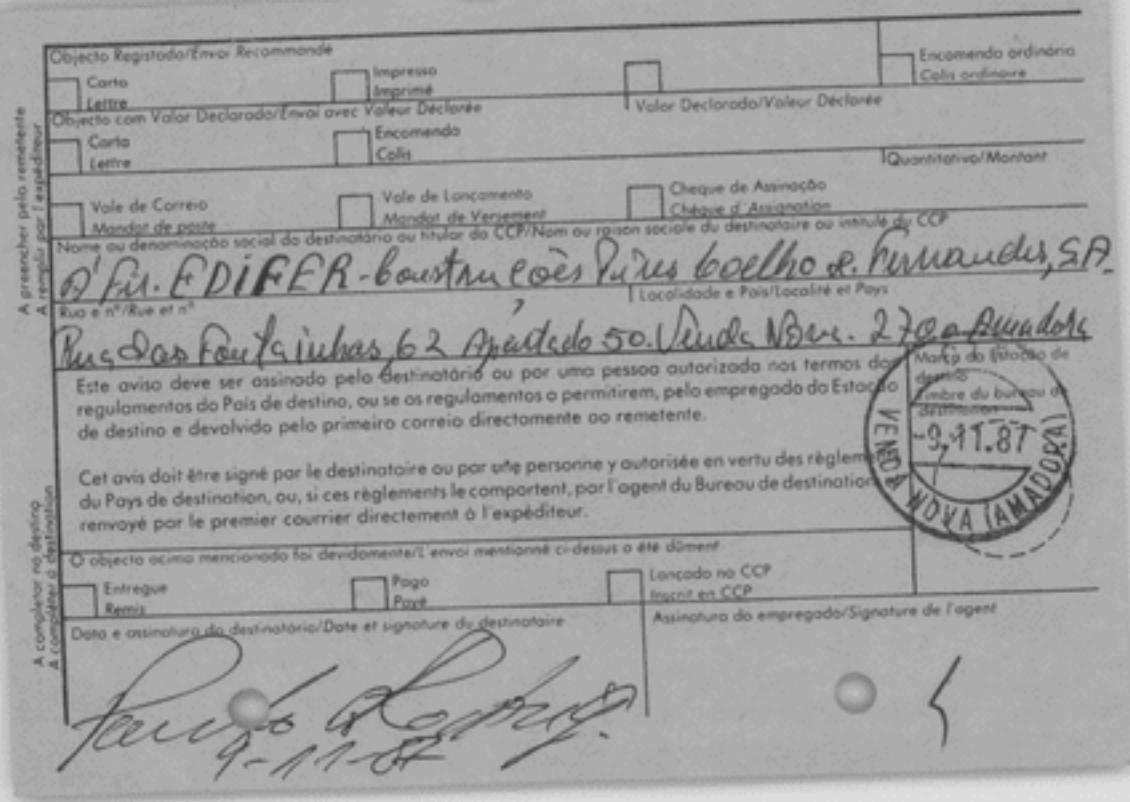 A preencher pelo remetente
A remplir par l'expéditeur
Objecto Registado/Envoi Recommandé
Carta
Lettre
Impresso
Imprimé
Encomenda ordinária
Colis ordinaire
Objecto com Valor Declarado/Envoi avec Valeur Déclarée
Valor Declarado/Valeur Déclarée
Carta
Lettre
Encomenda
Colis
Quantitativo/Montant
Vale de Correio
Mandat de poste
Vale de Lançamento
Mandat de Versement
Cheque de Assinação
Chèque d'Assignation
Nome ou denominação social do destinatário ou titular da CCP/Nom ou raison sociale du destinataire ou intitulé du CCP
À Fir. EDIFER - Construções Pires Coelho e. Fernandes, SA.
Rua e nº/Rue et nº
Localidade e País/Localité et Pays
Rua das Fontainhas, 62 Apartado 50. Venda Nova. 2700 Amadora
Este aviso deve ser assinado pelo destinatário ou por uma pessoa autorizada nos termos dos
regulamentos do País de destino, ou se os regulamentos o permitirem, pelo empregado da Estação
de destino e devolvido pelo primeiro correio directamente ao remetente.
Marca da Estação de
destino
Timbre du bureau de
destination
VENDA NOVA (AMADORA)
-9.11.87
Cet avis doit être signé par le destinataire ou par une personne y autorisée en vertu des règlem
du Pays de destination, ou, si ces règlements le comportent, par l'agent du Bureau de destination
renvoyé par le premier courrier directement à l'expéditeur.
A completar no destino
A compléter à destination
O objecto acima mencionado foi devidamente/L'envoi mentionné ci-dessus a été dûment
Entregue
Remis
Pago
Payé
Lançado na CCP
Inscrit en CCP
Data e assinatura do destinatário/Date et signature du destinataire
Assinatura do empregado/Signature de l'agent
9-11-87